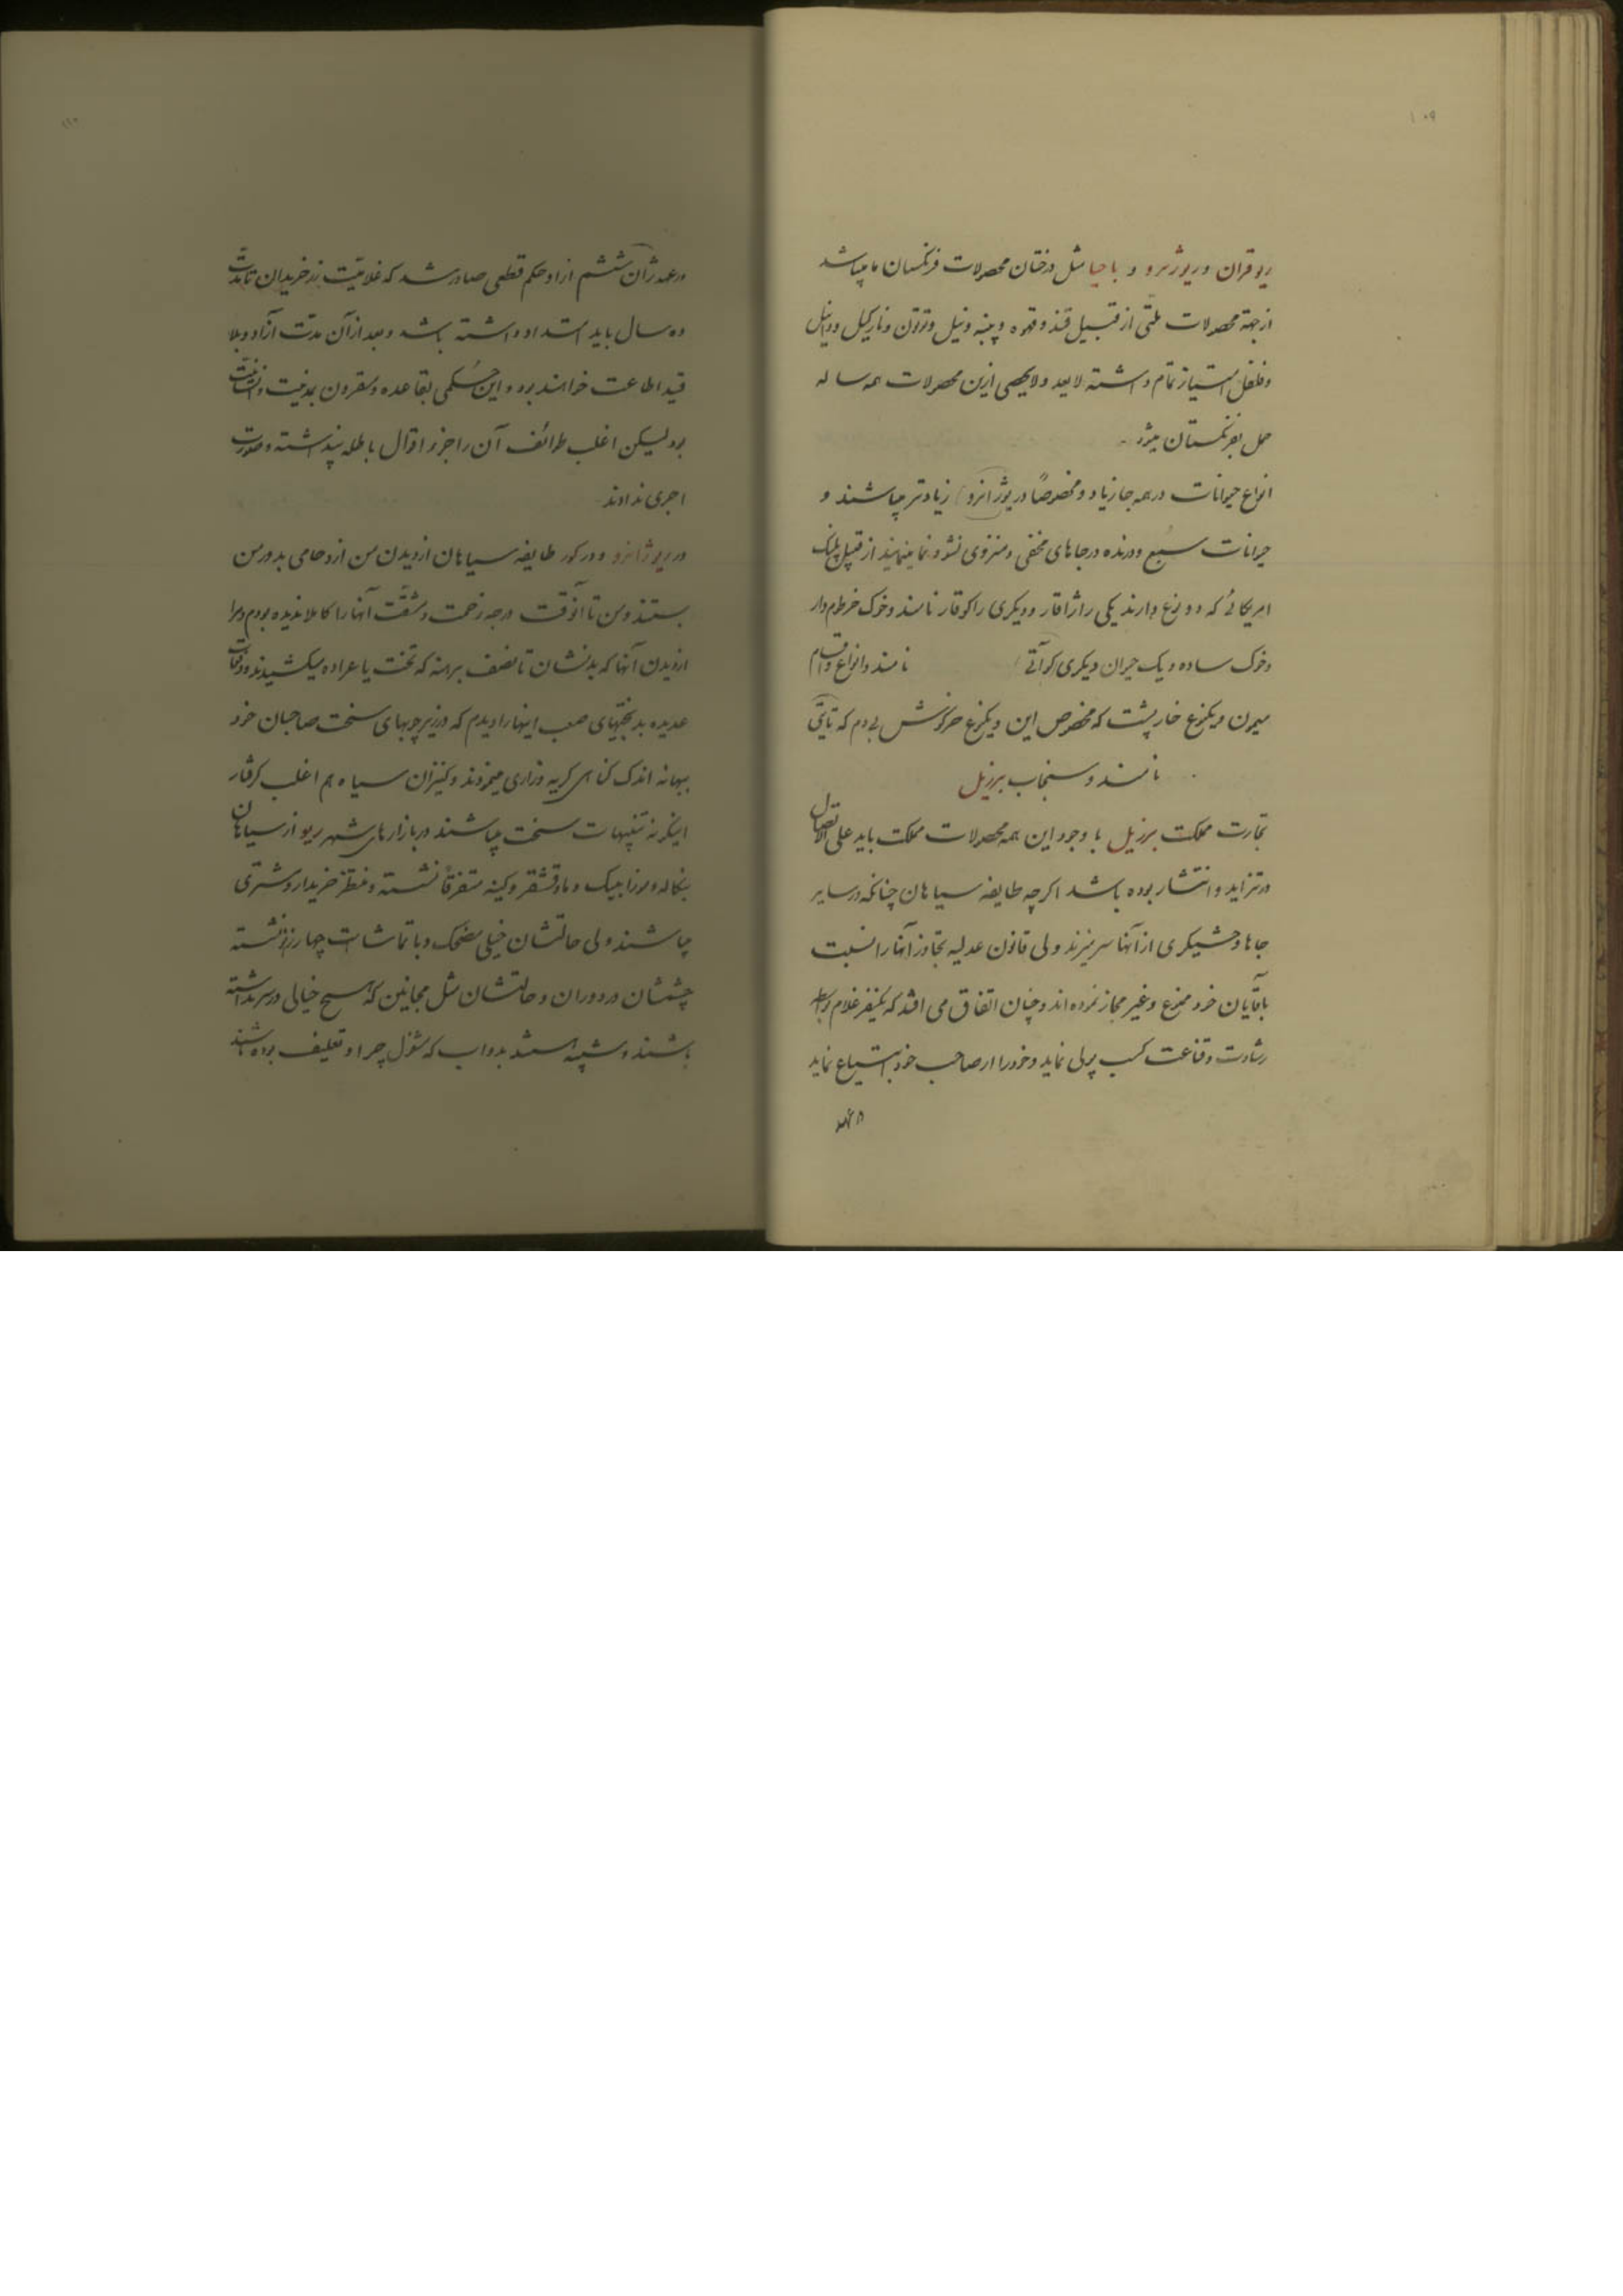 ۱۰۹
ریوقران و ریوژنرو و باحیا مثل درختان محصولات فرنگستان ما میباشد
از جهة محصولات ملتی از قبیل قند و قهوه و پنبه و نیل و توتون و نارگیل و وانیل
و فلفل امتیاز تمام داشته لایعد و لایحصی ازین محصولات همه ساله
حمل بفرنگستان میشود
انواع حیوانات در همه جا زیاد و مخصوصاً در (یوژانرو) زیادتر میباشند و
حیوانات سبع و درنده در جاهای مخفی و منزوی نشو و نما مینمایند از قبیل پلنگ
امریکائی که دو نوع دارند یکی را ژاقار و دیگری را کوقار نامند و خوک خرطوم دار
و خوک ساده و یک حیوان دیگری (کوآتی) نامند و انواع و اقسام
میمون و یکنوع خارپشت که مخصوص این و یکنوع خرگوش بی دم که تاپتی
نامند و سنجاب برزیل
تجارت مملکت برزیل با وجود این همه محصولات مملکت باید علی الاتصال
در تزاید و انتشار بوده باشد اگرچه طایفه سیاهان چنانکه در سایر
جاها وحشیگری از آنها سر نیزند ولی قانون عدلیه تجاوز آنها را نسبت
بآقایان خود ممنوع و غیر مجاز نموده اند و چنان اتفاق می افتد که یکنفر غلام بواسطه
رشادت و قناعت کسب پولی نماید و خود را از صاحب خود ابتیاع نماید
۱۱۰
در عهد ژان ششم از او حکم قطعی صادر شد که غلامیت زرخریدان تا مدت
ده سال باید امتداد داشته باشد و بعد از آن مدت آزاد و بلا
قید اطاعت خواهند بود و این حکمی بقاعده و مقرون بمدنیت و انسانیت
بود لیکن اغلب طوائف آن را جزو اقوال باطله پنداشته و صورت
اجری ندادند
در ریوژانرو و در کور طایفه سیاهان از دیدن من ازدحامی بدور من
بستند و من تا آنوقت درجه زحمت و مشقت آنها را کاملا ندیده بودم و مرا
از دیدن آنها که بدنشان تا نصف برهنه که تخت یا عراده میکشیدند و دفعات
عدیده بدبختیهای صعب اینها را دیدم که در زیر چوبهای سخت صاحبان خود
ببهانه اندک گناهی گریه و زاری مینمودند و کنیزان سیاه هم اغلب گرفتار
اینگونه تنبیهات سخت میباشند در بازارهای شهر ریو از سیاهان
بنگاله و موزامبیک و ماداقشقر و کینه متفرقاً نشسته و منتظر خریدار و مشتری
میباشند ولی حالتشان خیلی مضحک و با تماشاست چهارزانو نشسته
چشمشان در دوران و حالتشان مثل مجانین که هیچ خیالی در سر نداشته
باشند و شبیه هستند بدواب که مشغول چرا و تعلیف بوده باشند